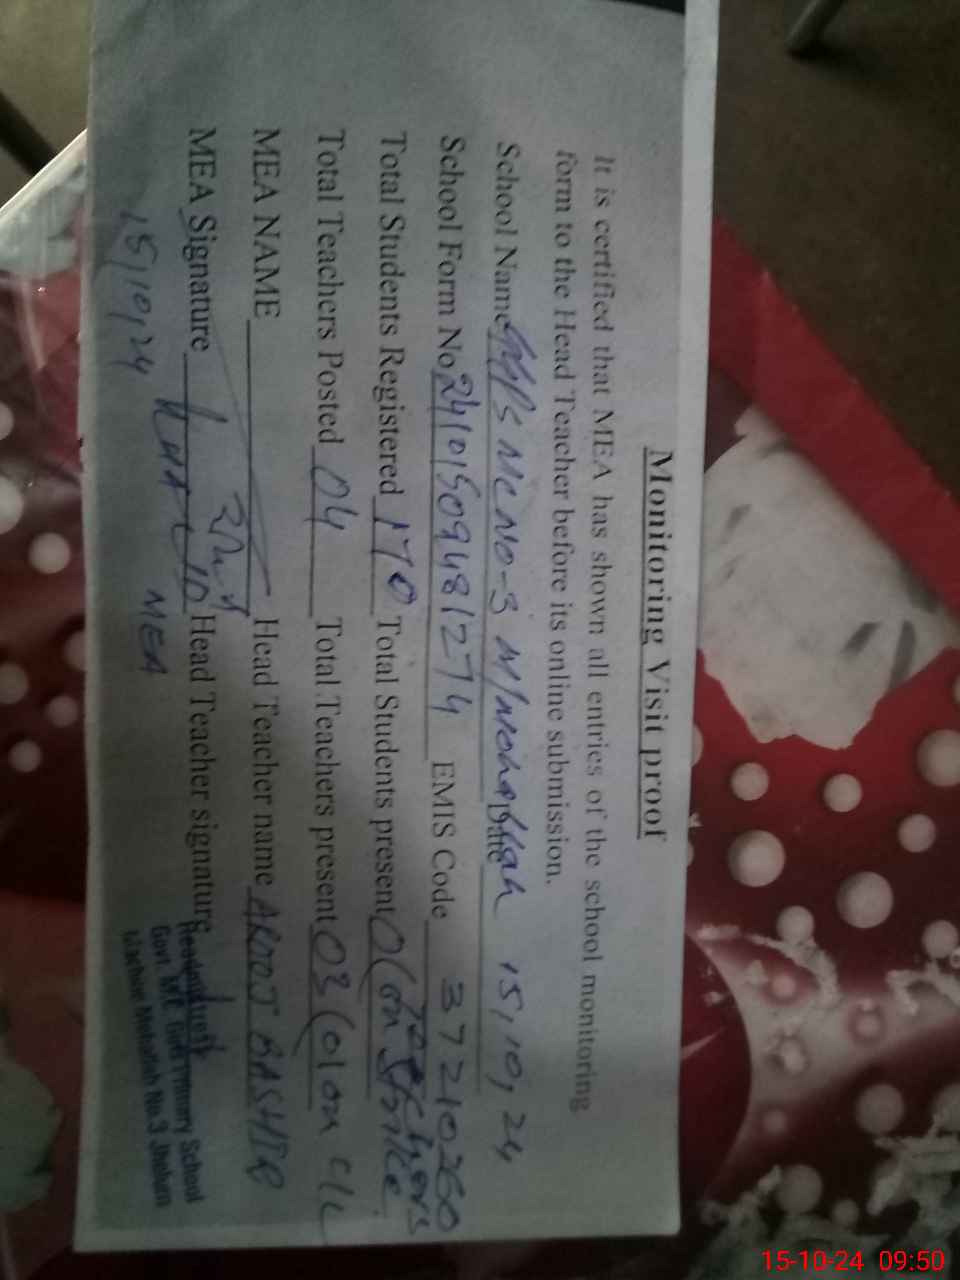 Monitoring Visit proof
It is certified that MEA has shown all entries of the school monitoring
form to the Head Teacher before its online submission.
School Name GMPS MC NO-3 M/Mohallah Date 15,10,24
School Form No 24101509481274 EMIS Code 37210260
Total Students Registered 170 Total Students present 0 (on strike Teachers
Total Teachers Posted 04 Total Teachers present 03 (01 on C/L
MEA NAME Head Teacher name AROOJ BASHIR
MEA Signature Head Teacher signature
MEA
15,10,24
Headmistress
Govt. M.C. Girls Primary School
Machine Mohallah No.3 Jhelum
15-10-24 09:50